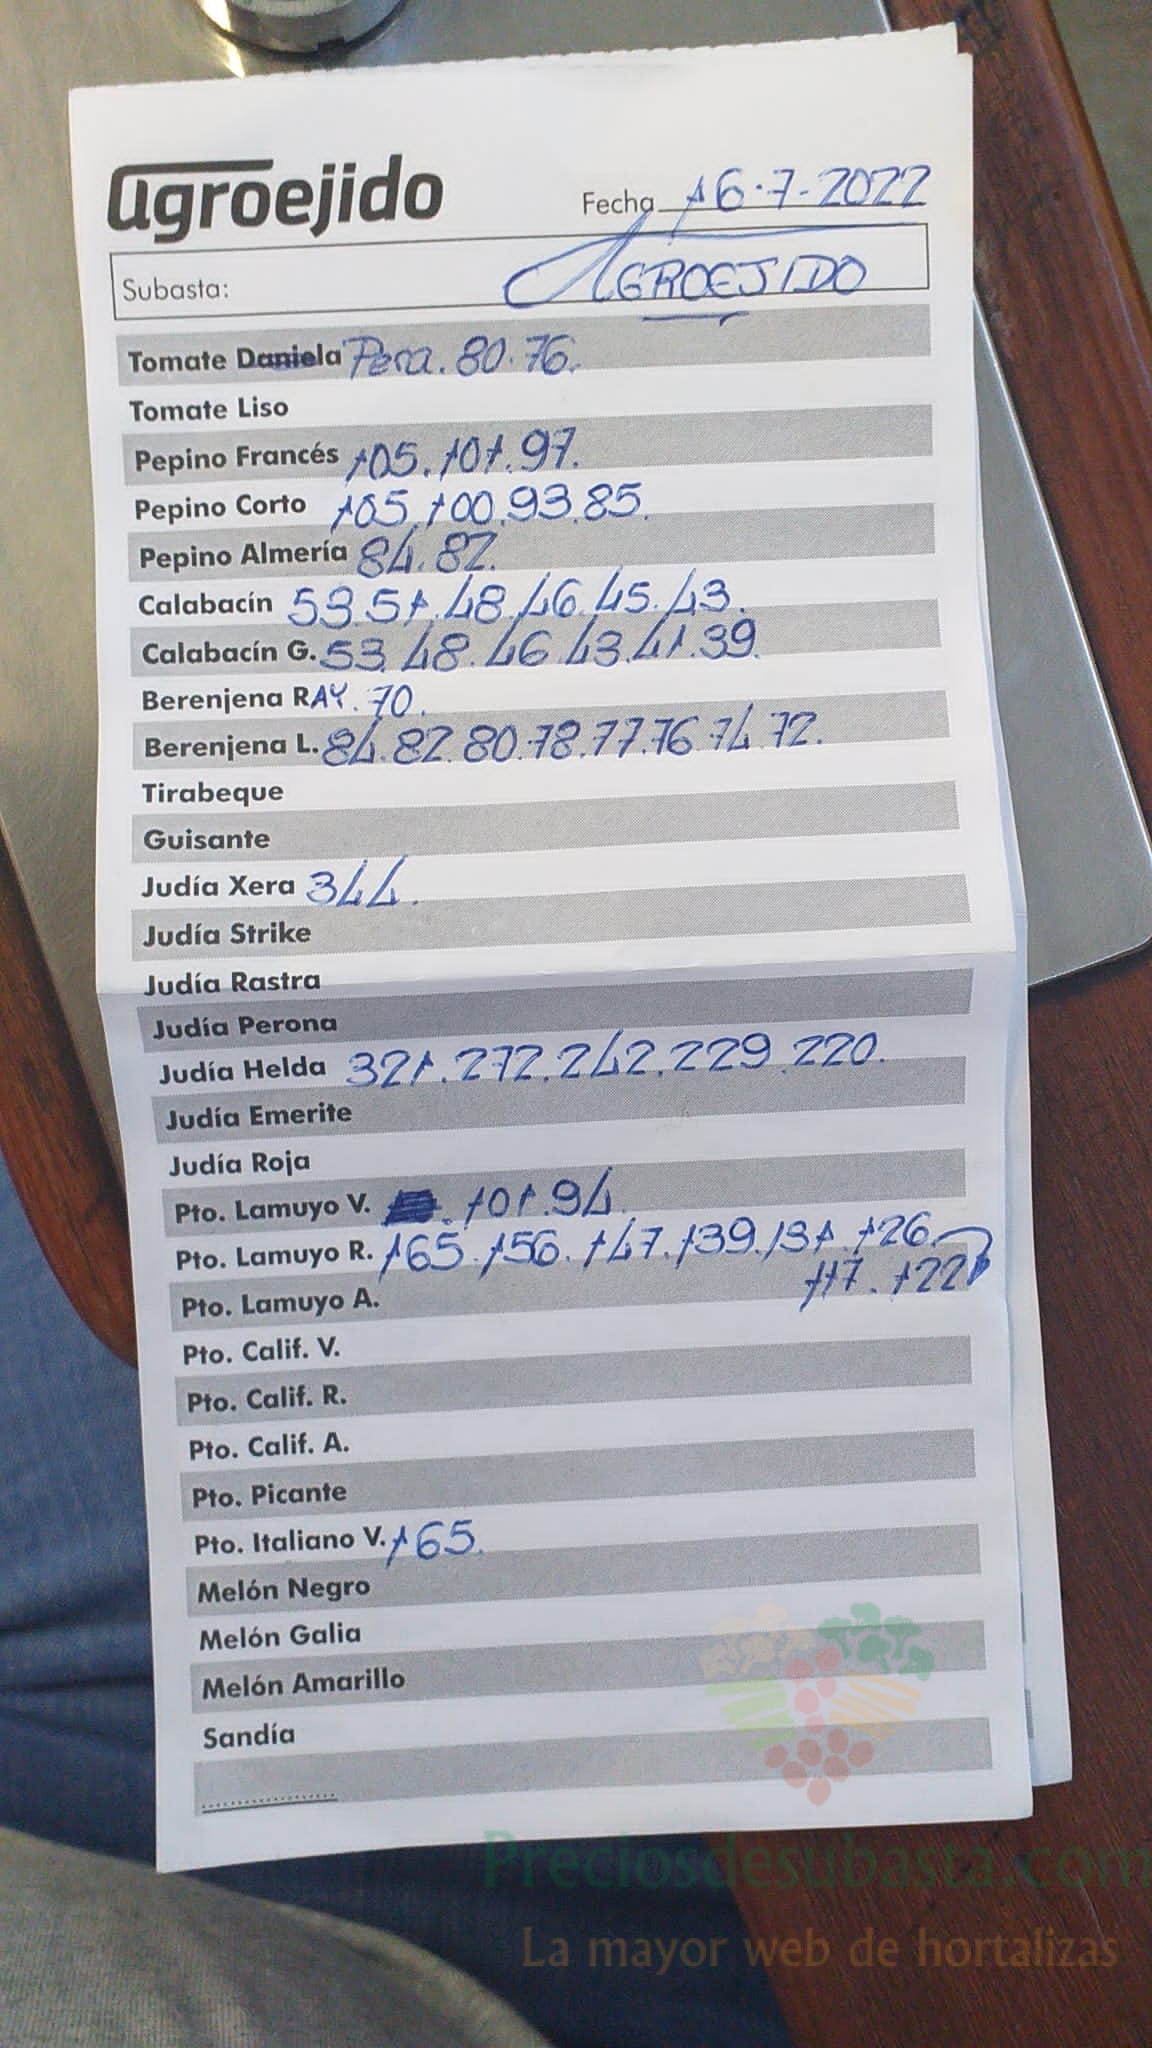 agroejido
Fecha 16.7-2022
Subasta: AGROEJIDO
Tomate Daniela Pera. 80.76.
Tomate Liso
Pepino Francés 105.101.97.
Pepino Corto 105.100.93.85.
Pepino Almería 84.82.
Calabacín 53.51.48.46.45.43.
Calabacín G. 53.48.46.43.41.39.
Berenjena RAY. 70.
Berenjena L. 84.82.80.78.77.76.74.72.
Tirabeque
Guisante
Judía Xera 344.
Judía Strike
Judía Rastra
Judía Perona
Judía Helda 321.272.242.229.220.
Judía Emerite
Judía Roja
Pto. Lamuyo V. 101.94.
Pto. Lamuyo R. 165.156.147.139.131.126.
117.122
Pto. Lamuyo A.
Pto. Calif. V.
Pto. Calif. R.
Pto. Calif. A.
Pto. Picante
Pto. Italiano V. 165.
Melón Negro
Melón Galia
Melón Amarillo
Sandía
Preciosdesubasta.com
La mayor web de hortalizas